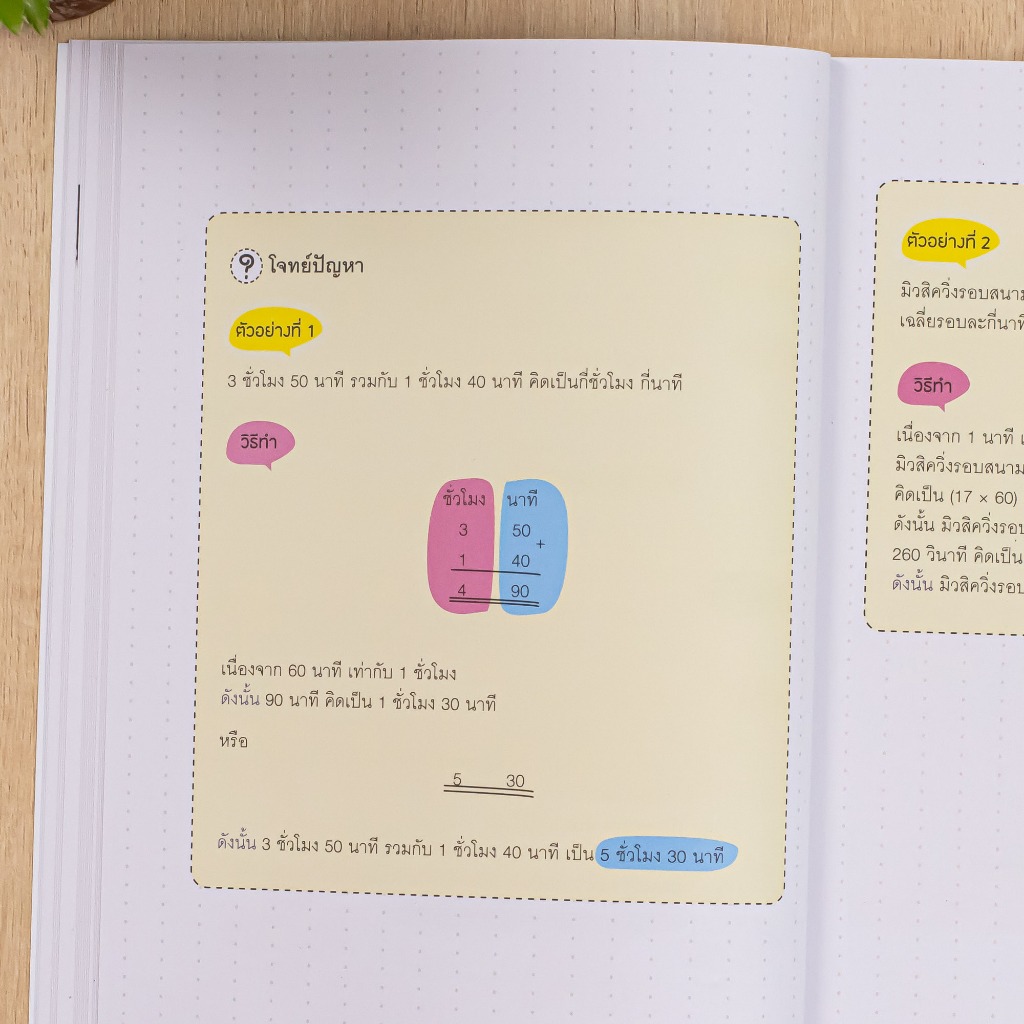 ? โจทย์ปัญหา
ตัวอย่างที่ 1
3 ชั่วโมง 50 นาที รวมกับ 1 ชั่วโมง 40 นาที คิดเป็นกี่ชั่วโมง กี่นาที
วิธีทำ
ชั่วโมง นาที
3 50
+
1 40
4 90
เนื่องจาก 60 นาที เท่ากับ 1 ชั่วโมง
ดังนั้น 90 นาที คิดเป็น 1 ชั่วโมง 30 นาที
หรือ
5 30
ดังนั้น 3 ชั่วโมง 50 นาที รวมกับ 1 ชั่วโมง 40 นาที เป็น 5 ชั่วโมง 30 นาที
ตัวอย่างที่ 2
มิวสิควิ่งรอบสนาม
เฉลี่ยรอบละกี่นาที
วิธีทำ
เนื่องจาก 1 นาที
มิวสิควิ่งรอบสนาม
คิดเป็น (17 × 60)
ดังนั้น มิวสิควิ่งรอบ
260 วินาที คิดเป็น
ดังนั้น มิวสิควิ่งรอบ